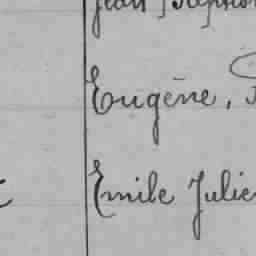 Jean
Eugène,
Emile Julie